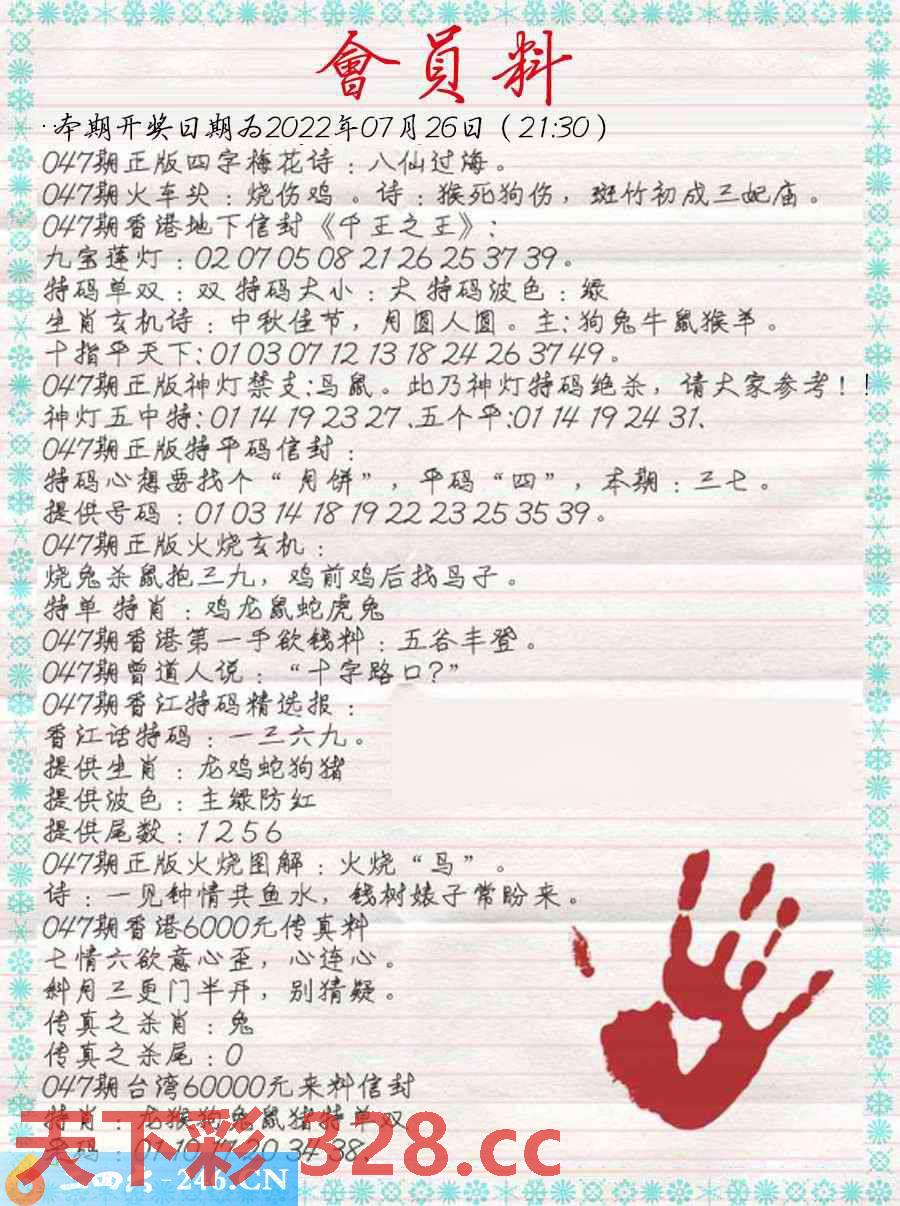 會員料
·本期开奖日期为2022年07月26日（21:30）
047期正版四字梅花诗：八仙过海。
047期火车头：烧伤鸡。诗：猴死狗伤，斑竹初成三妃庙。
047期香港地下信封《千王之王》：
九宝莲灯：02 07 05 08 21 26 25 37 39。
特码单双：双 特码大小：大 特码波色：绿
生肖玄机诗：中秋佳节，月圆人圆。主:狗兔牛鼠猴羊。
十指平天下:01 03 07 12 13 18 24 26 37 49。
047期正版神灯禁支:马鼠。此乃神灯特码绝杀，请大家参考！！
神灯五中特:01 14 19 23 27、五个平:01 14 19 24 31、
047期正版特平码信封：
特码心想要找个“月饼”，平码“四”，本期：三七。
提供号码：01 03 14 18 19 22 23 25 35 39。
047期正版火烧玄机：
烧兔杀鼠抱三九，鸡前鸡后找马子。
特单 特肖：鸡龙鼠蛇虎兔
047期香港第一手欲钱料：五谷丰登。
047期曾道人说：“十字路口？”
047期香江特码精选报：
香江话特码：一三六九。
提供生肖：龙鸡蛇狗猪
提供波色：主绿防红
提供尾数：1 2 5 6
047期正版火烧图解：火烧“马”。
诗：一见钟情共鱼水，钱树婊子常盼来。
047期香港6000元传真料
七情六欲意心歪，心连心。
斜月三更门半开，别猜疑。
传真之杀肖：兔
传真之杀尾：0
047期台湾60000元来料信封
特肖：龙猴狗兔鼠猪特单双
码：01 10 17 20 34 38、
天下彩 328.cc
-246.CN